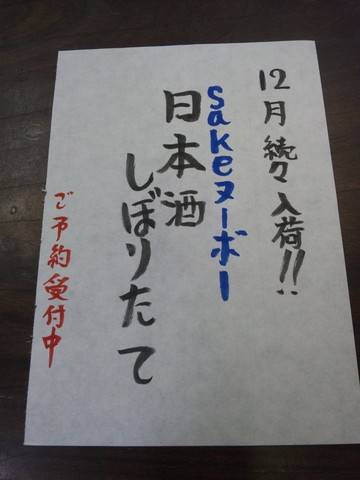 12月 続々入荷!!
sakeヌーボー
日本酒
しぼりたて
ご予約受付中